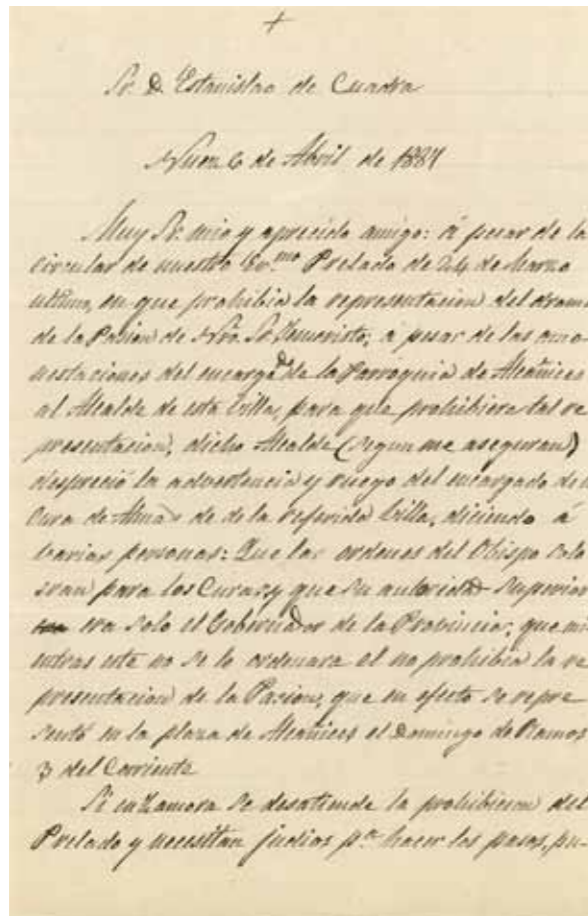 +
Sr. D. Estanislao de Cuadra
Nuez 6 de Abril de 1887
Muy Sr. mio y apreciado amigo: á pesar de la
circular de nuestro Exmo Prelado de 24 de Marzo
ultimo, en que prohibia la representacion del drama
de la Pasion de Ntro. Sr. Jesucristo; á pesar de las amo-
nestaciones del encargdo de la Parroquia de Alcañices
al Alcalde de esta Villa, para que prohibiera tal re
presentacion, dicho Alcalde (segun me aseguran)
despreció la advertencia y ruego del encargado de la
Cura de Almas de de la referida Villa, diciendo á
varias personas: Que las ordenes del Obispo solo
eran para los Curas, y que su autoridad superior
era solo el Gobernador de la Provincia; que mi
entras este no se lo ordenara el no prohibia la re
presentacion de la Pasion, que en efecto se repre
sentó en la plaza de Alcañices el Domingo de Ramos
3 del Corriente
Si en Zamora se desatiende la prohibicion del
Prelado y necesitan judios pa hacer los pasos, pu-